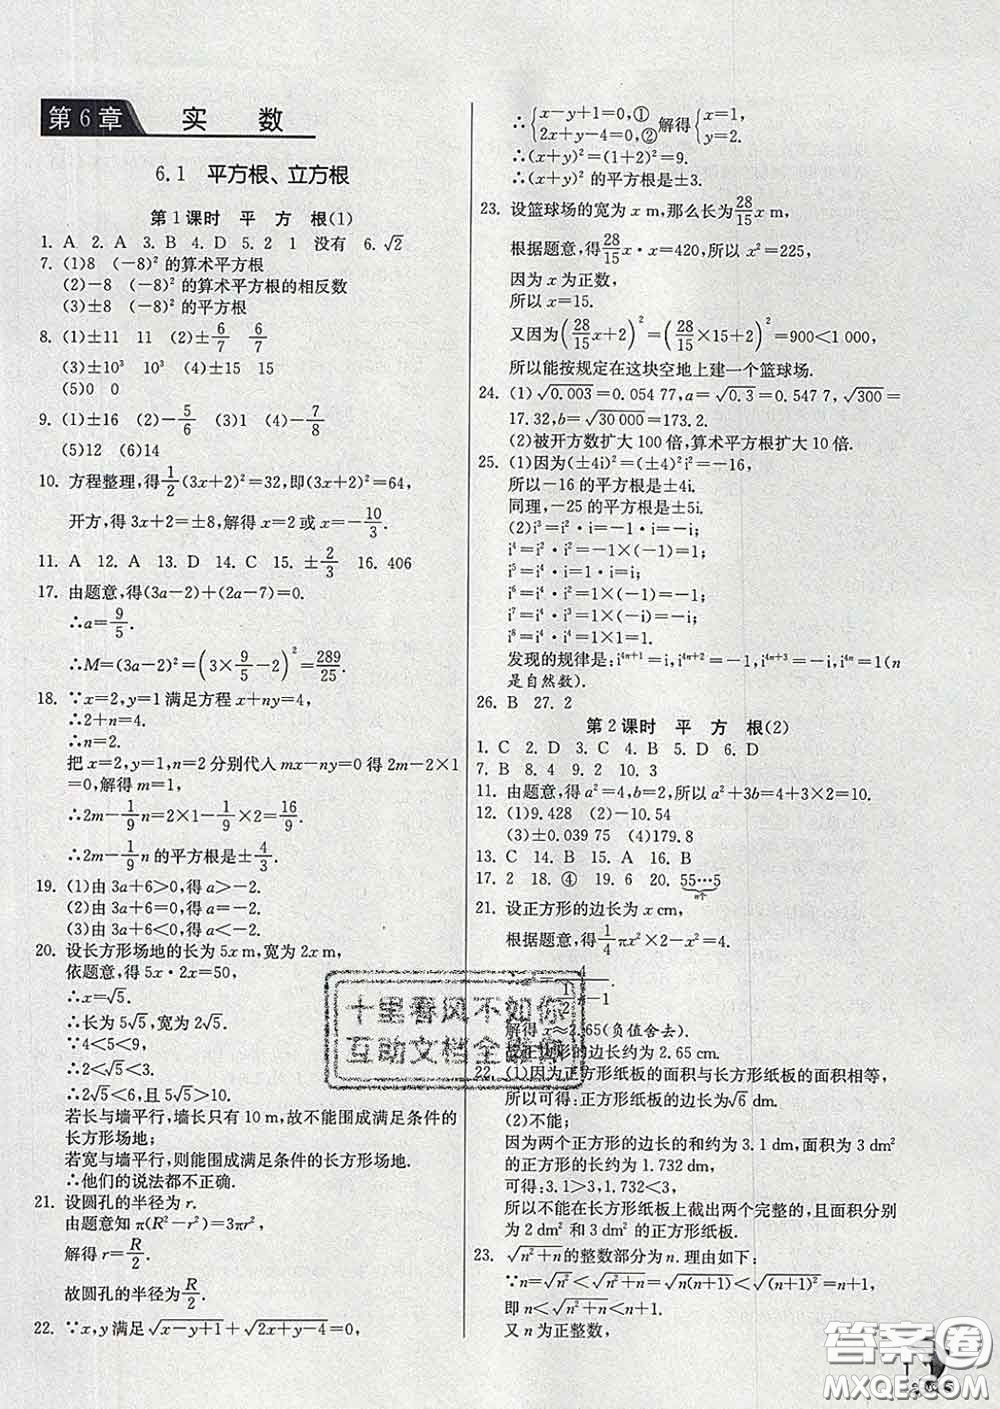 第6章 实 数
6.1 平方根、立方根
第1课时 平 方 根(1)
1. A 2. A 3. B 4. D 5. 2 1 没有 6. √2
7. (1)8 (−8)² 的算术平方根
(2)−8 (−8)² 的算术平方根的相反数
(3)±8 (−8)² 的平方根
8. (1)±11 11 (2)±6/7 6/7
(3)±10³ 10³ (4)±15 15
(5)0 0
9. (1)±16 (2)−5/6 (3)1 (4)−7/8
(5)12 (6)14
10. 方程整理,得1/2(3x+2)²=32,即(3x+2)²=64,
开方,得 3x+2=±8,解得 x=2 或 x=−10/3.
11. A 12. A 13. D 14. C 15. ±2/3 16. 406
17. 由题意,得(3a−2)+(2a−7)=0.
∴a=9/5.
∴M=(3a−2)²=(3×9/5−2)²=289/25.
18. ∵x=2,y=1 满足方程 x+ny=4,
∴2+n=4.
∴n=2.
把 x=2,y=1,n=2 分别代人 mx−ny=0 得 2m−2×1
=0,解得 m=1,
∴2m−1/9n=2×1−1/9×2=16/9.
∴2m−1/9n 的平方根是±4/3.
19. (1)由 3a+6>0,得 a>−2.
(2)由 3a+6=0,得 a=−2.
(3)由 3a+6<0,得 a<−2.
20. 设长方形场地的长为 5x m,宽为 2x m,
依题意,得 5x·2x=50,
∴x=√5.
∴长为 5√5,宽为 2√5.
∵4<5<9,
∴2<√5<3.
∴2√5<6,且 5√5>10.
若长与墙平行,墙长只有 10 m,故不能围成满足条件的
长方形场地;
若宽与墙平行,则能围成满足条件的长方形场地.
∴他们的说法都不正确.
21. 设圆孔的半径为 r.
由题意知 π(R²−r²)=3πr²,
解得 r=R/2.
故圆孔的半径为R/2.
22. ∵x,y 满足√(x−y+1)+√(2x+y−4)=0,
∴{x−y+1=0,① 2x+y−4=0,② 解得{x=1, y=2.
∴(x+y)²=(1+2)²=9.
∴(x+y)² 的平方根是±3.
23. 设篮球场的宽为 x m,那么长为28/15x m,
根据题意,得28/15x·x=420,所以 x²=225,
因为 x 为正数,
所以 x=15.
又因为(28/15x+2)²=(28/15×15+2)²=900<1 000,
所以能按规定在这块空地上建一个篮球场.
24. (1)√0.003=0.054 77,a=√0.3=0.547 7,√300=
17.32,b=√30 000=173.2.
(2)被开方数扩大 100 倍,算术平方根扩大 10 倍.
25. (1)因为(±4i)²=(±4)²i²=−16,
所以−16 的平方根是±4i.
同理,−25 的平方根是±5i.
(2)i³=i²·i=−1·i=−i;
i⁴=i²·i²=−1×(−1)=1;
i⁵=i⁴·i=1·i=i;
i⁶=i⁴·i²=1×(−1)=−1;
i⁷=i⁴·i³=1×(−i)=−i;
i⁸=i⁴·i⁴=1×1=1.
发现的规律是:i⁴ⁿ⁺¹=i,i⁴ⁿ⁺²=−1,i⁴ⁿ⁺³=−i,i⁴ⁿ=1(n
是自然数).
26. B 27. 2
第2课时 平 方 根(2)
1. C 2. D 3. C 4. B 5. D 6. D
7. B 8. 4 9. 2 10. 3
11. 由题意,得 a²=4,b=2,所以 a²+3b=4+3×2=10.
12. (1)9.428 (2)−10.54
(3)±0.039 75 (4)179.8
13. C 14. B 15. A 16. B
17. 2 18. ④ 19. 6 20. 55…5 n个
21. 设正方形的边长为 x cm,
根据题意,得1/4πx²×2−x²=4,
解得 x≈2.65(负值舍去).
故正方形的边长约为 2.65 cm.
22. (1)因为正方形纸板的面积与长方形纸板的面积相等,
所以可得:正方形纸板的边长为√6 dm.
(2)不能;
因为两个正方形的边长的和约为 3.1 dm,面积为 3 dm²
的正方形的长约为 1.732 dm,
可得:3.1>3,1.732<3,
所以不能在长方形纸板上截出两个完整的,且面积分别
为 2 dm² 和 3 dm² 的正方形纸板.
23. √(n²+n)的整数部分为 n. 理由如下:
∵n=√n²<√(n²+n)=√(n(n+1))<√((n+1)²)=n+1,
即 n<√(n²+n)<n+1.
又 n 为正整数,
十里春风不如你
答案圈
MXQE.COM